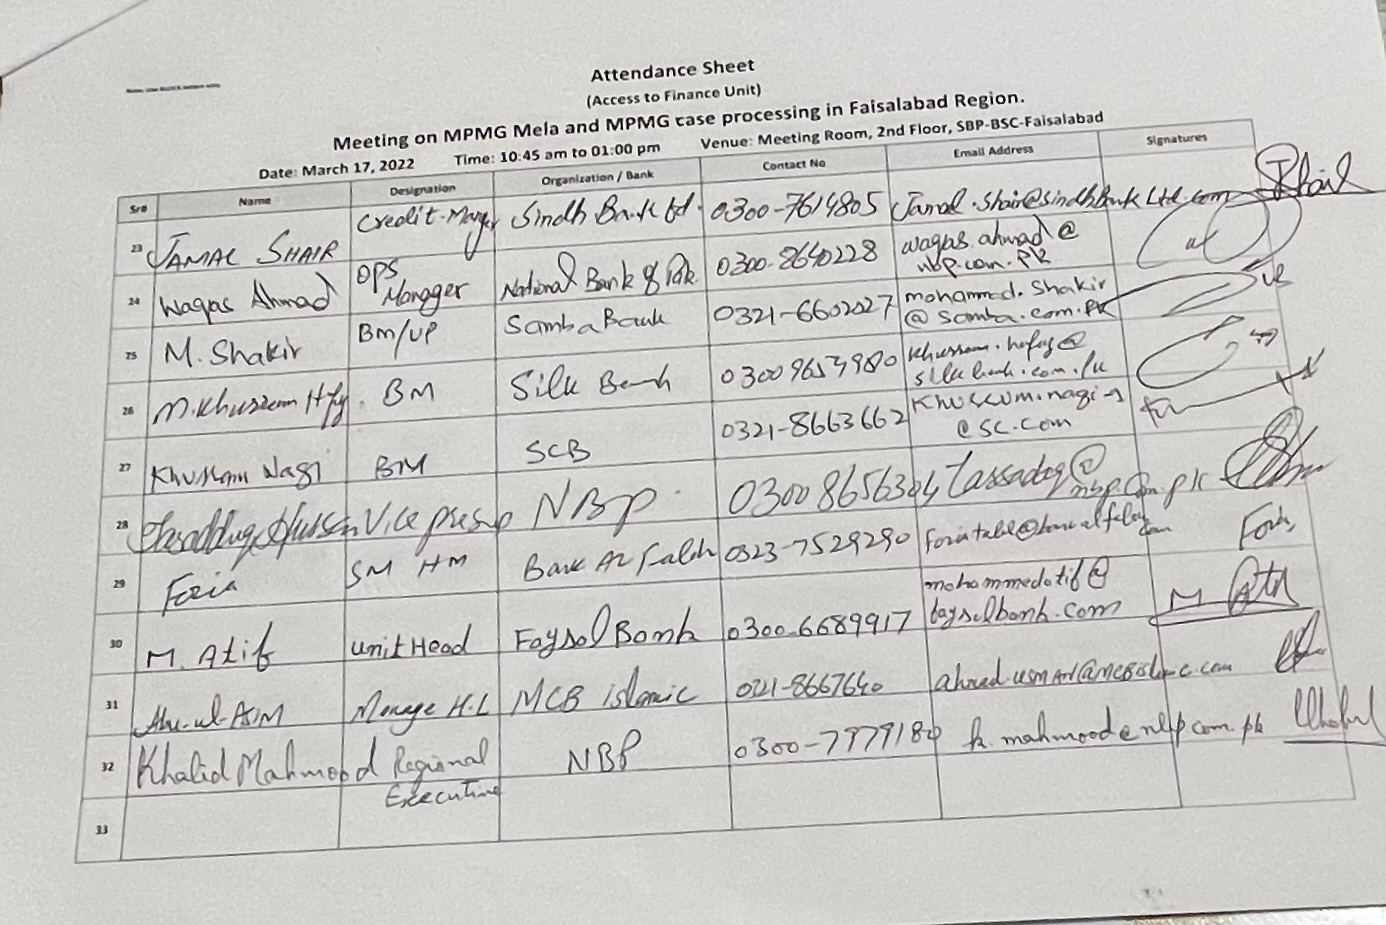 Attendance Sheet
(Access to Finance Unit)
Meeting on MPMG Mela and MPMG case processing in Faisalabad Region.
Date: March 17, 2022 Time: 10:45 am to 01:00 pm Venue: Meeting Room, 2nd Floor, SBP-BSC-Faisalabad
Sr# Name Designation Organization / Bank Contact No Email Address Signatures
23 JAMAL SHAIR Credit-Manger Sindh Bank Ltd. 0300-7614805 Jamal.Shair@sindhbankLtd.com
24 Waqas Ahmad OPS Manager National Bank of Pak. 0300-8640228 waqas.ahmad@
nbp.com.pk
25 M. Shakir BM/VP Samba Bank 0321-6602027 mohammad.Shakir
@samba.com.pk
26 BM Silk Bank 03009653980
silkbank.com.pk
27 Khurram Nagi BM SCB 0321-8663662 Khurrum.nagi-1
@sc.com
28 NBP. Tassadaq@
nbp.com.pk
29 Fozia SM HM Bank Al Falah 0323-7529290
30 M. Atif Unit Head Faysal Bank 0300-6689917 mohammedatif@
faysalbank.com M Atif
31 Manage H.L MCB islamic 0321-8667640
32 Khalid Mahmood Regional NBP 0300-7979180 k.mahmood@nbp.com.pk
Executive
33